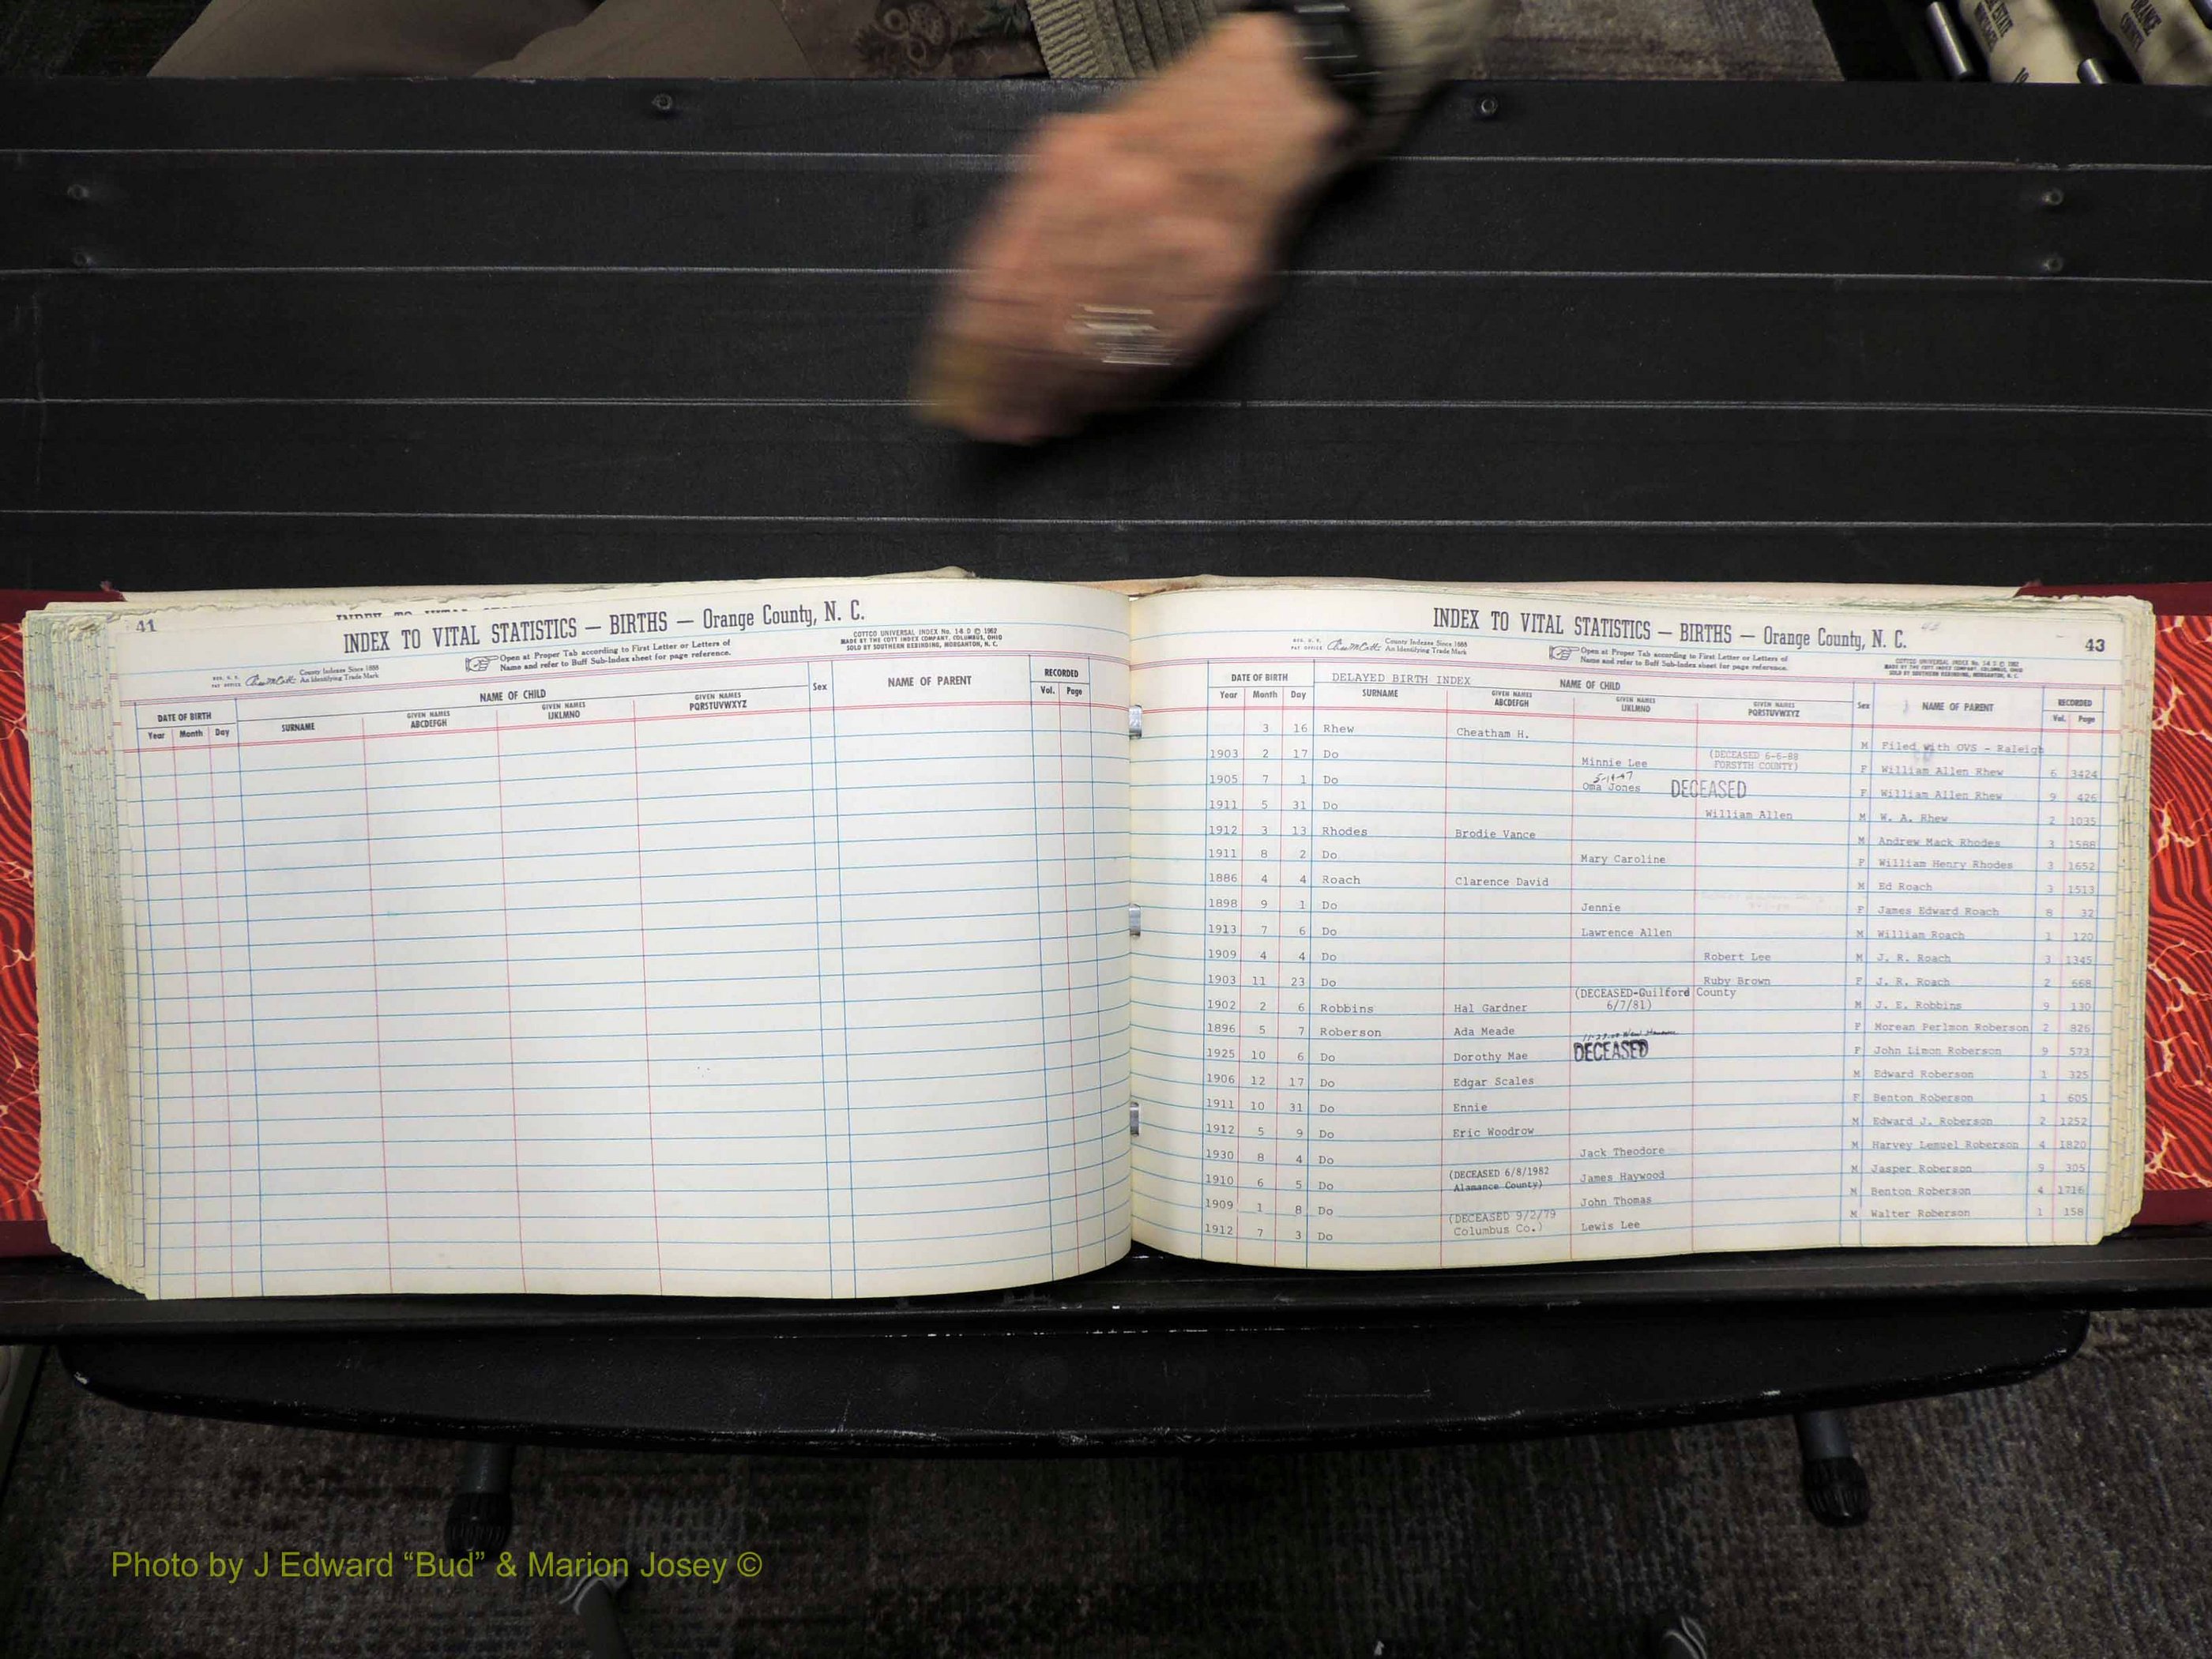 41
INDEX TO VITAL STATISTICS — BIRTHS — Orange County, N. C.
County Indexes Since 1888
An Identifying Trade Mark
Open at Proper Tab according to First Letter or Letters of
Name and refer to Buff Sub-Index sheet for page reference.
COTTCO UNIVERSAL INDEX No. 14 D © 1962
MADE BY THE COTT INDEX COMPANY, COLUMBUS, OHIO
SOLD BY SOUTHERN REBINDING, MORGANTON, N. C.
DATE OF BIRTH NAME OF CHILD Sex NAME OF PARENT RECORDED
Year Month Day SURNAME GIVEN NAMES ABCDEFGH GIVEN NAMES IJKLMNO GIVEN NAMES PQRSTUVWXYZ Vol. Page
INDEX TO VITAL STATISTICS — BIRTHS — Orange County, N. C.
43
County Indexes Since 1888
An Identifying Trade Mark
Open at Proper Tab according to First Letter or Letters of
Name and refer to Buff Sub-Index sheet for page reference.
COTTCO UNIVERSAL INDEX No. 14 D © 1962
MADE BY THE COTT INDEX COMPANY, COLUMBUS, OHIO
SOLD BY SOUTHERN REBINDING, MORGANTON, N. C.
DATE OF BIRTH DELAYED BIRTH INDEX NAME OF CHILD Sex NAME OF PARENT RECORDED
Year Month Day SURNAME GIVEN NAMES ABCDEFGH GIVEN NAMES IJKLMNO GIVEN NAMES PQRSTUVWXYZ Vol. Page
3 16 Rhew Cheatham H. M Filed with OVS - Raleigh
1903 2 17 Do Minnie Lee (DECEASED 6-6-88 FORSYTH COUNTY) F William Allen Rhew 6 3424
1905 7 1 Do Oma Jones DECEASED F William Allen Rhew 9 426
1911 5 31 Do William Allen M W. A. Rhew 2 1035
1912 3 13 Rhodes Brodie Vance M Andrew Mack Rhodes 3 1588
1911 8 2 Do Mary Caroline F William Henry Rhodes 3 1652
1886 4 4 Roach Clarence David M Ed Roach 3 1513
1898 9 1 Do Jennie F James Edward Roach 8 32
1913 7 6 Do Lawrence Allen M William Roach 1 120
1909 4 4 Do Robert Lee M J. R. Roach 3 1345
1903 11 23 Do Ruby Brown F J. R. Roach 2 668
1902 2 6 Robbins Hal Gardner (DECEASED-Guilford County 6/7/81) M J. E. Robbins 9 130
1896 5 7 Roberson Ada Meade F Morean Perlmon Roberson 2 826
1925 10 6 Do Dorothy Mae DECEASED F John Limon Roberson 9 573
1906 12 17 Do Edgar Scales M Edward Roberson 1 325
1911 10 31 Do Ennie F Benton Roberson 1 605
1912 5 9 Do Eric Woodrow M Edward J. Roberson 2 1252
1930 8 4 Do Jack Theodore M Harvey Lemuel Roberson 4 1820
1910 6 5 Do (DECEASED 6/8/1982 Alamance County) James Haywood M Jasper Roberson 9 305
1909 1 8 Do John Thomas M Benton Roberson 4 1716
1912 7 3 Do (DECEASED 9/2/79 Columbus Co.) Lewis Lee M Walter Roberson 1 158
Photo by J Edward “Bud” & Marion Josey ©